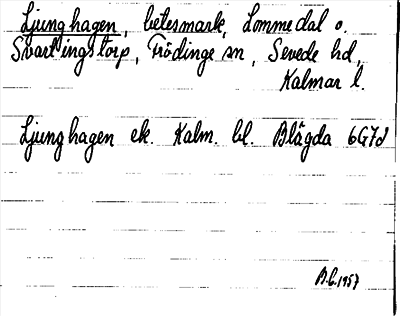 Ljunghagen, betesmark, Lommedal o.
Svartingstorp, Frödinge sn, Sevede hd,
Kalmar l.
Ljunghagen ek. Kalm. bl. Blägda 6G7d
B.G. 1957